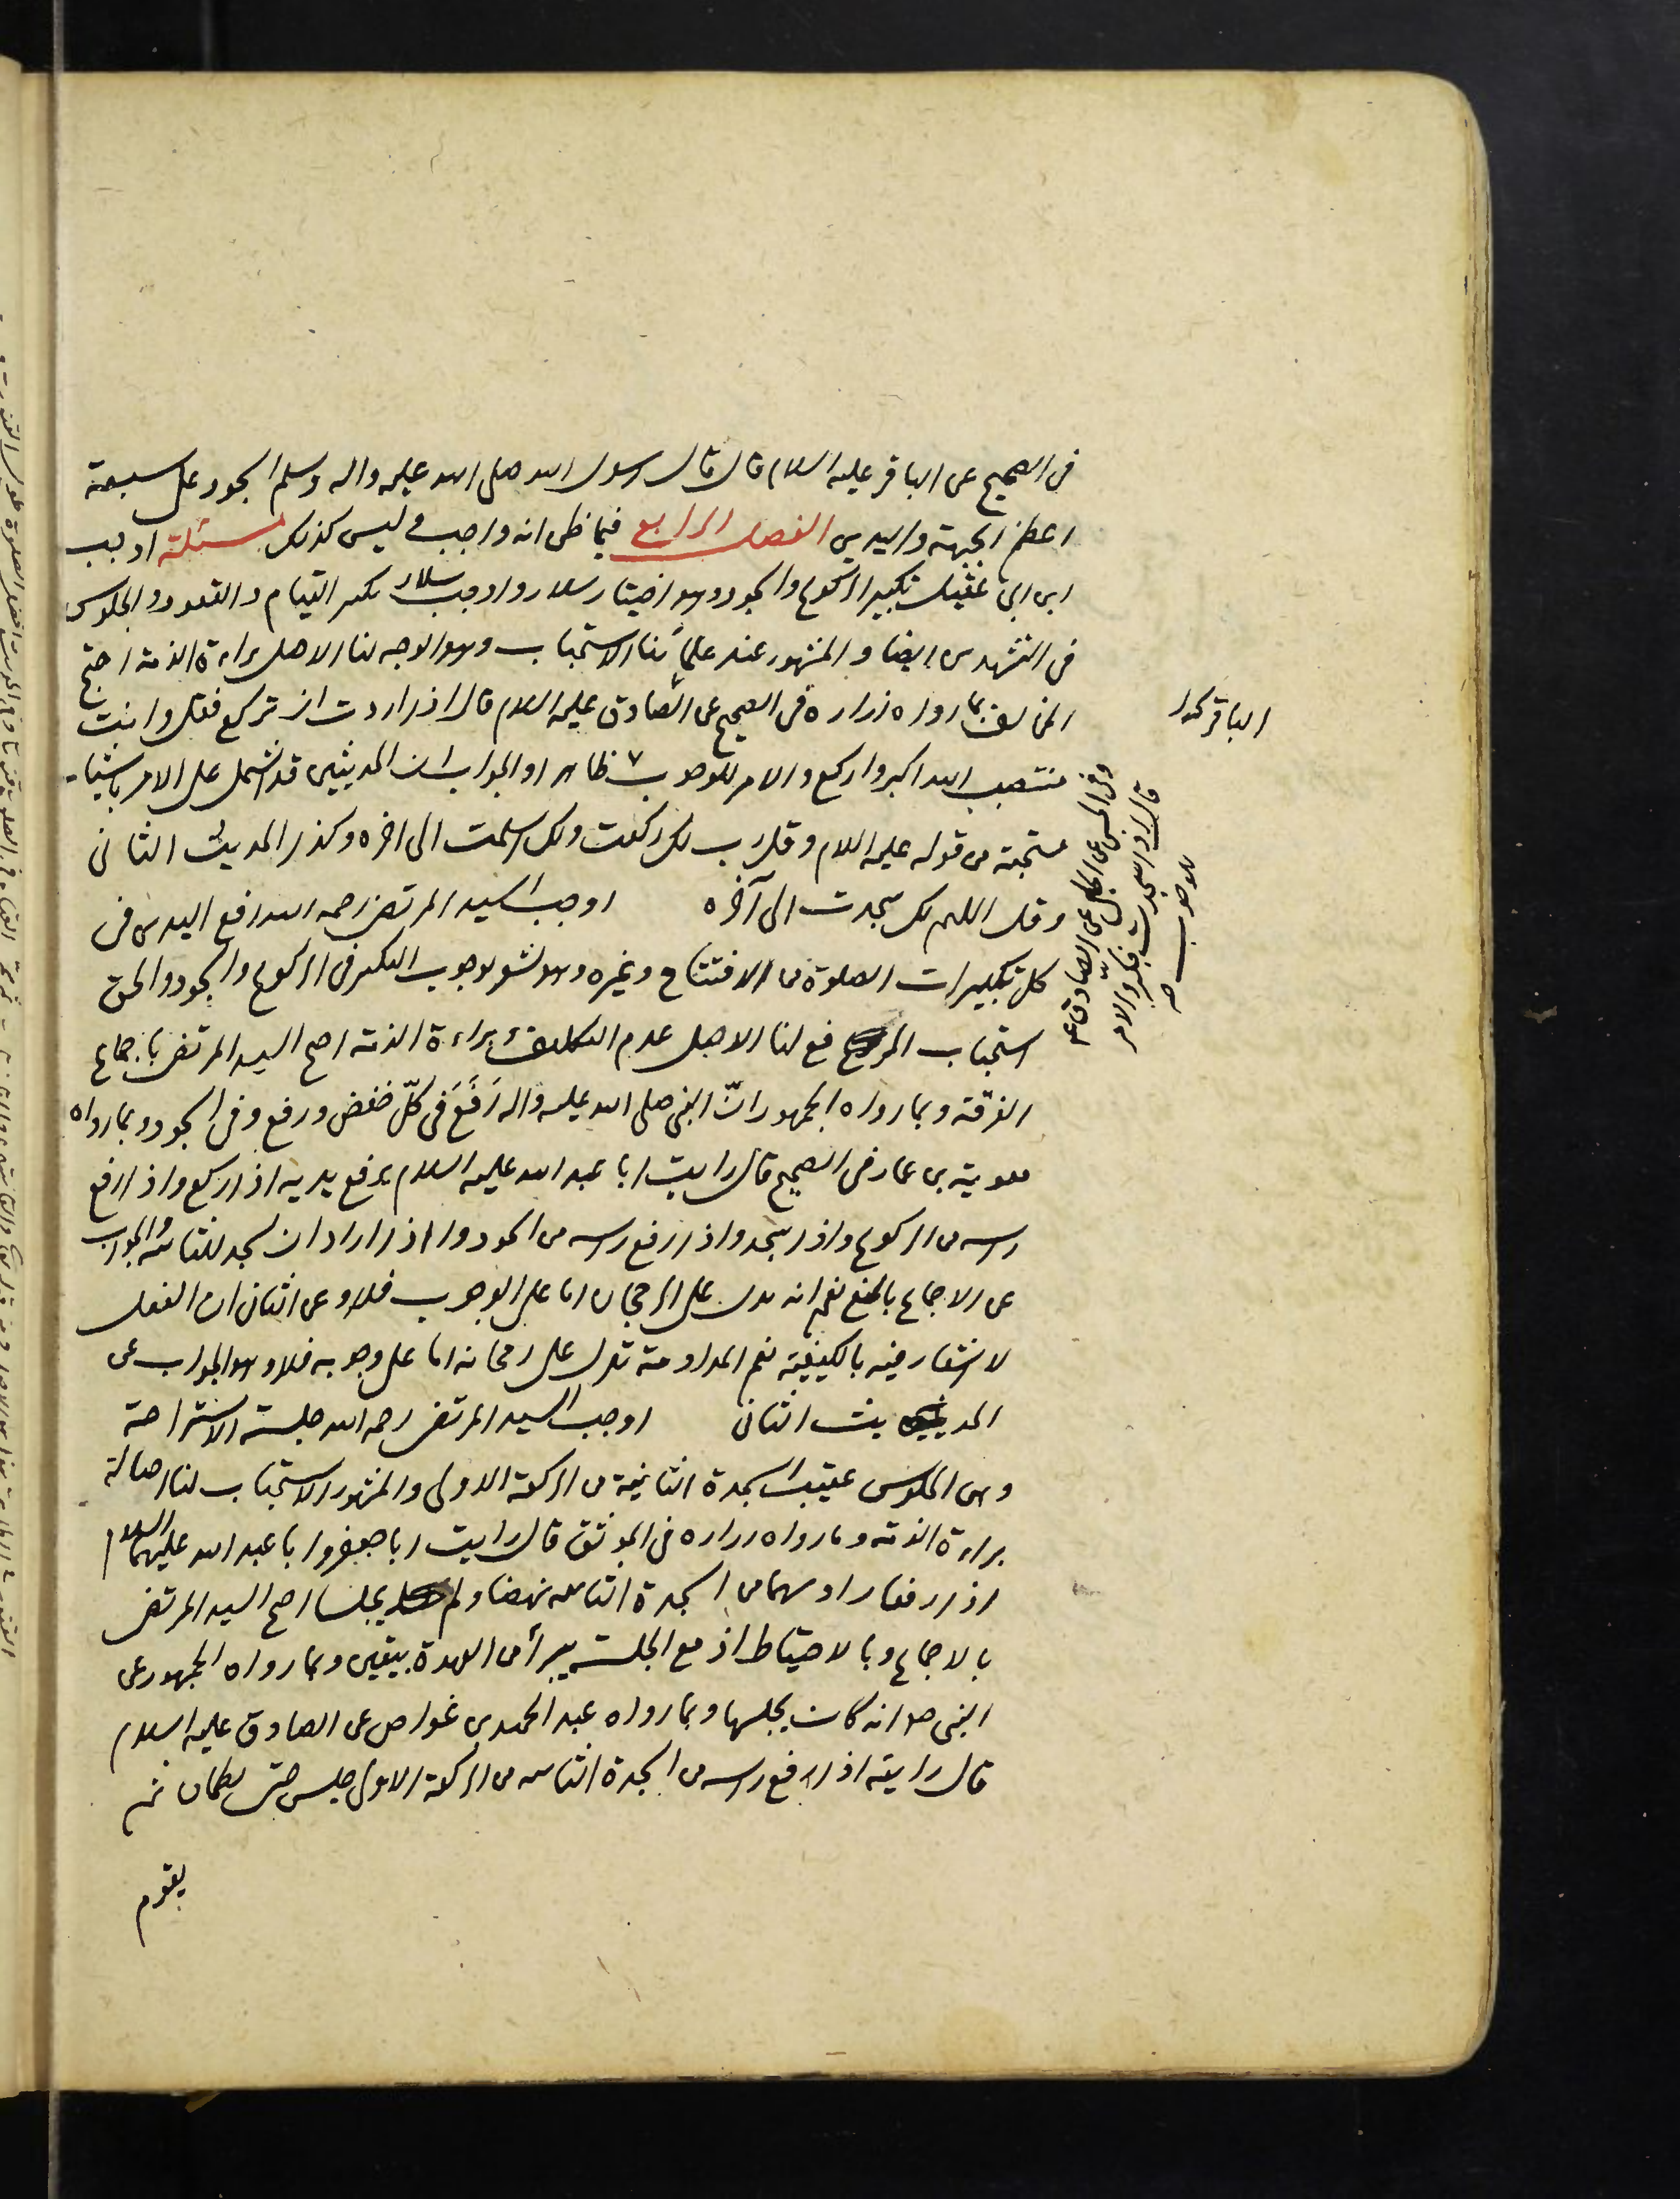 في الصحيح عن الباقر عليه السلام قال قال رسول الله صلى الله عليه واله وسلم السجود على سبعة
اعظم الجبهة واليدين الفصل الرابع فيما ظن انه واجب وليس كذلك مسئلة اوجب
ابن ابي عقيل تكبير الركوع والسجود وهو اختيار سلار واوجب سلار تكبير القيام والقعود والجلوس
في التشهدين ايضا والمشهور عند علمائنا الاستحباب وهو الوجه لنا الاصل براءة الذمة احتج
المخالف بما رواه زرارة في الصحيح عن الصادق عليه السلام قال اذا اردت ان تركع فقل وانت
منتصب الله اكبر واركع والامر للوجوب ظاهرا والجواب ان الحديثين قد اشتمل على الامر باشياء
مستحبة من قوله عليه السلام وقل رب لك ركعت ولك اسلمت الى اخره وكذا الحديث الثاني
وقل اللهم لك سجدت الى آخره اوجب السيد المرتضى رحمه الله رفع اليدين في
كل تكبيرات الصلوة من الافتتاح وغيره وهو يشعر بوجوب التكبير في الركوع والسجود والحق
استحباب الرفع لنا الاصل عدم التكليف وبراءة الذمة احتج السيد المرتضى باجماع
الفرقة وبما رواه الجمهور انّ النبي صلى الله عليه واله رَفَعَ في كلّ خفض ورفع وفي السجود وبما رواه
معوية بن عمار في الصحيح قال رايت ابا عبد الله عليه السلام يرفع يديه اذا ركع واذا رفع
راسه من الركوع واذا سجد واذا رفع راسه من السجود واذا اراد ان يسجد للثانية والجواب
عن الاجماع بالمنع نعم انه يدل على الرجحان اما على الوجوب فلا وعن الثاني ان الفعل
لا اشعار فيه بالكيفية نعم المداومة تدل على رجحانه اما على وجوبه فلا وهو الجواب عن
الحديث الثاني اوجب السيد المرتضى رحمه الله جلسة الاستراحة
وهي الجلوس عقيب السجدة الثانية من الركعة الاولى والمشهور الاستحباب لنا اصالة
براءة الذمة وما رواه زراره في الموثق قال رايت ابا جعفر وابا عبد الله عليهما السلام
اذا رفعا روسهما من السجدة الثانية نهضا ولم يجلسا احتج السيد المرتضى
بالاجماع وبالاحتياط اذ مع الجلسة يبرأ من العهدة بيقين وبما رواه الجمهور عن
النبي ص انه كان يجلسها وبما رواه عبد الحميد بن غواص عن الصادق عليه السلام
قال رايته اذا رفع راسه من السجدة الثانية من الركعة الاولى جلس حتى يطمان ثم
يقوم
الباقر
وفي الحسن عن الحلبي عن الصادق ع
قال اذا سجدت فكبّر والامر
للوجوب